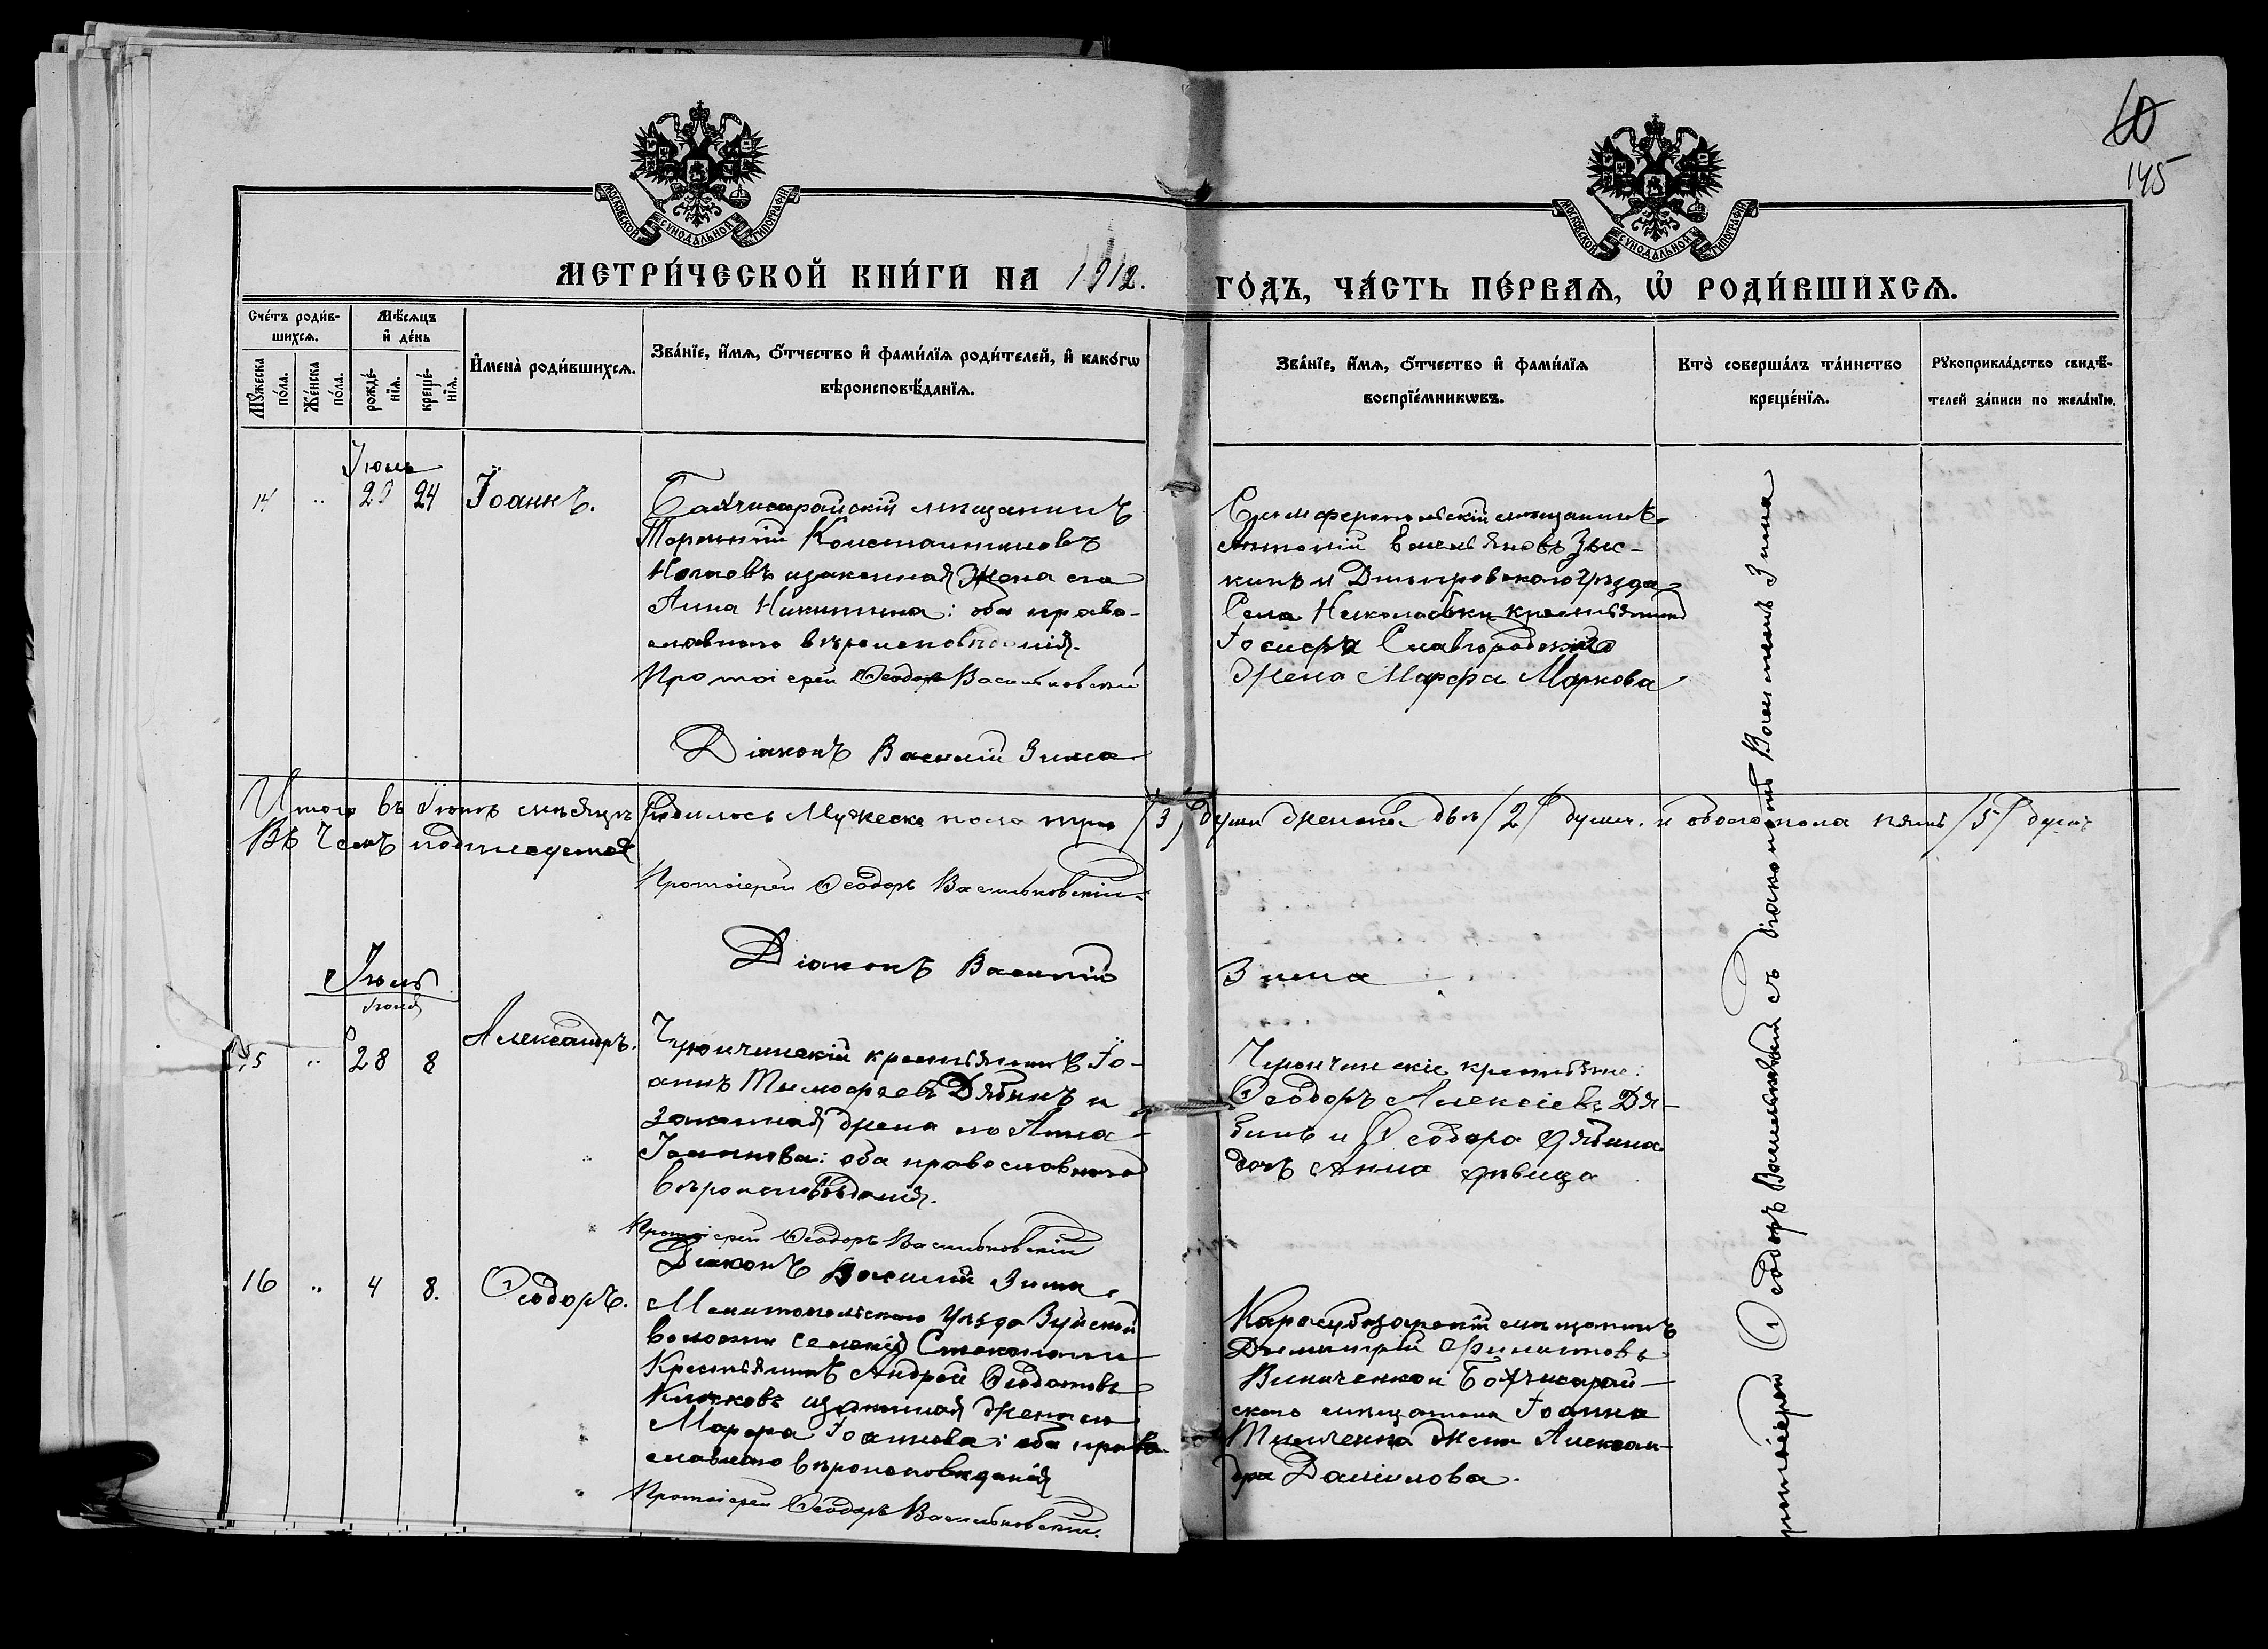 60
145
МОСКОВСКОЙ СѴНОДАЛЬНОЙ ТИПОГРАФІИ
МОСКОВСКОЙ СѴНОДАЛЬНОЙ ТИПОГРАФІИ
МЕТРИ́ЧЕСКОЙ КНИ́ГИ НА 1912.
ГО́ДЪ, ЧА́СТЬ ПЕ́РВАЯ, Ѡ РОДИ́ВШИХСЯ.
Сче́тъ роди́в-
шихся.
Мѣ́сяцъ
и де́нь
Мꙋ́жеска
по́ла.
Же́нска
по́ла.
рожде́-
нїя.
креще́-
нїя.
Имена̀ роди́вшихся.
Зва́нїе, и́мя, о́тчество и фами́лїя роди́телей, и како́гѡ
вѣроисповѣ́данїя.
Зва́нїе, и́мя, о́тчество и фами́лїя
воспрїе́мникѡвъ.
Кто̀ соверша́лъ та́инство
креще́нїя.
Рꙋкоприкла́дство свидѣ́-
телей за́писи по жела́нїю.
Іюнь
14 " 20 24 Іоаннъ.
Бахчисарайскій мѣщанинъ
Терентій Константиновъ
Ногаевъ и законная жена его
Анна Никитина: оба право-
славнаго вѣроисповѣданія.
Протоіерей Ѳеодоръ Васильковскій
Діаконъ Василій Зима
Симферопольскій мѣщанинъ
Антоній Емельяновъ Зыс-
кинъ и Днѣпровскаго уѣзда
Села Николаевки крестьянина
Іосифа Славгородскаго
жена Марфа Маркова
Протоіерей Ѳеодоръ Васильковскій съ діакономъ Василіемъ Зима
Итого въ Іюнѣ мѣсяцѣ родилось Мужеска пола три /3/ души женска двѣ /2/ души. и обоего пола пять /5/ душъ
Въ чемъ подписуемся
Протоіерей Ѳеодоръ Васильковскій.
Діаконъ Василій Зима
Іюль
Іюня
15 " 28 8 Александръ.
крестьянинъ Іо-
аннъ Тимофеевъ Дябинъ и
законная жена его Анна
Іоаннова: оба православнаго
вѣроисповѣданія.
Протоіерей Ѳеодоръ Васильковскій
Діаконъ Василій Зима
крестьяне:
Ѳеодоръ Алексіевъ Дя-
бинъ и Ѳеодора Дябина
дочь Анна дѣвица
16 " 4 8. Ѳеодоръ.
Мелитопольскаго Уѣзда
волости селенія
Крестьянинъ Андрей Ѳедотовъ
и законная жена его
Марфа Іоаннова: оба право-
славнаго вѣроисповѣданія
Протоіерей Ѳеодоръ Васильковскій.
Карасубазарскій мѣщанинъ
Димитрій Филиповъ
Виниченко и Бахчисарай-
скаго мѣщанина Іоанна
Тимченка жена Алексан-
дра Даніилова.